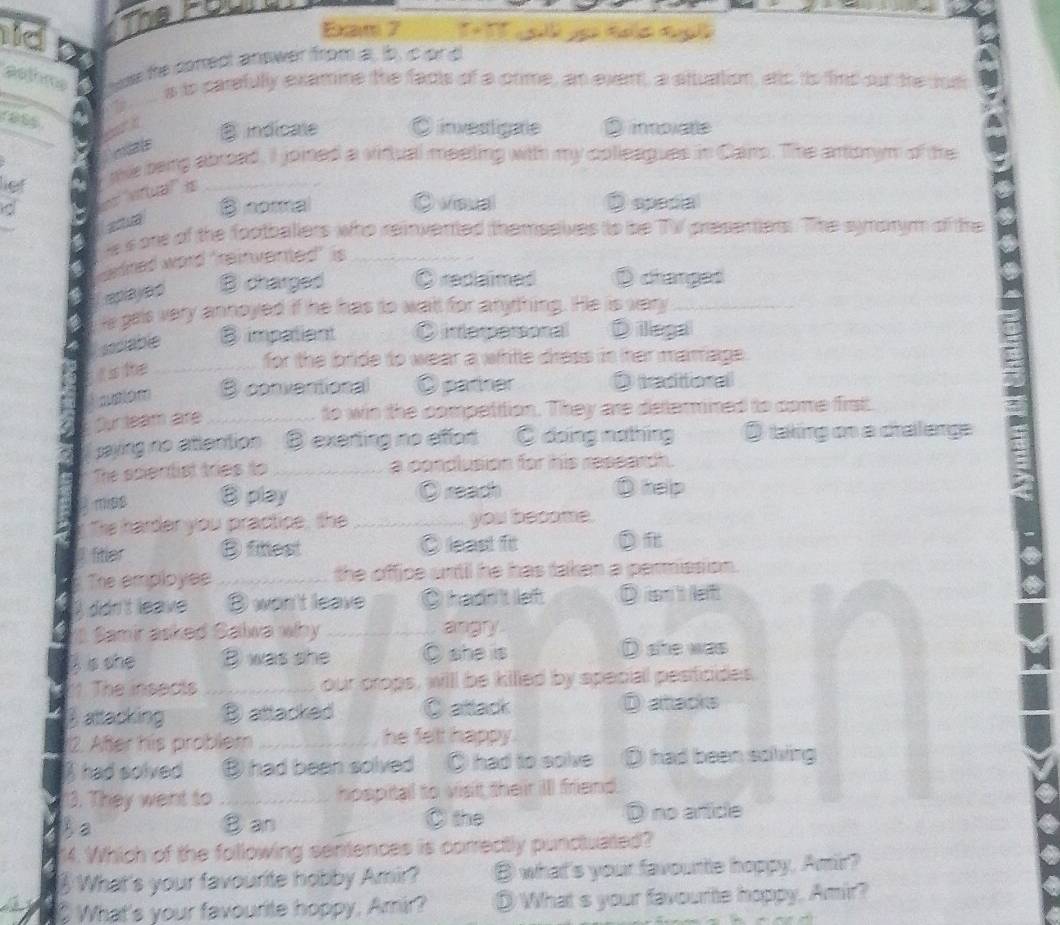 The
Exam 7
the correct answer from a, b, c or d
is to carefully examine the facts of a crime, an event, a situation, etc. to find out the truth
B indicate C investigate D innovate
being abroad, I joined a virtual meeting with my colleagues in Cairo. The antonym of the
"virtual" is ............
actual B normal C visual D special
is one of the footballers who reinvented themselves to be TV presenters. The synonym of the
word "reinvented" is ............
replayed B charged C reclaimed D changed
gets very annoyed if he has to wait for anything. He is very ............
sociable B impatient C interpersonal D illegal
It is the ............ for the bride to wear a white dress in her marriage.
custom B conventional C partner D traditional
Our team are ............ to win the competition. They are determined to come first.
paying no attention B exerting no effort C doing nothing D taking on a challenge
The scientist tries to ............ a conclusion for his research.
miss B play C reach D help
The harder you practice, the ............ you become.
fitter B fittest C least fit D fit
The employee ............ the office until he has taken a permission.
didn't leave B won't leave C hadn't left D isn't left
Samir asked Salwa why ............ angry.
is she B was she C she is D she was
The insects ............ our crops, will be killed by special pesticides.
attacking B attacked C attack D attacks
2. After his problem ............, he felt happy.
had solved B had been solved C had to solve D had been solving
3. They went to ............ hospital to visit their ill friend.
a B an C the D no article
4. Which of the following sentences is correctly punctuated?
What's your favourite hobby Amir? B what's your favourite hoppy, Amir?
C What's your favourite hoppy, Amir? D What s your favourite hoppy, Amir?
Ayman